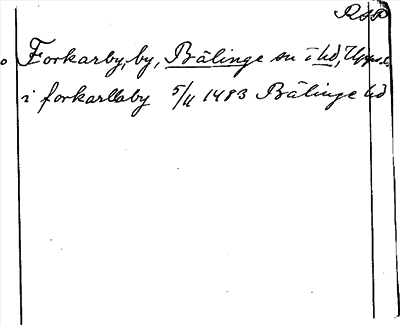 RSP
Forkarby, by, Bälinge sn i hd, Upps. l.
i forkarllaby 5/11 1483 Bälinge hd